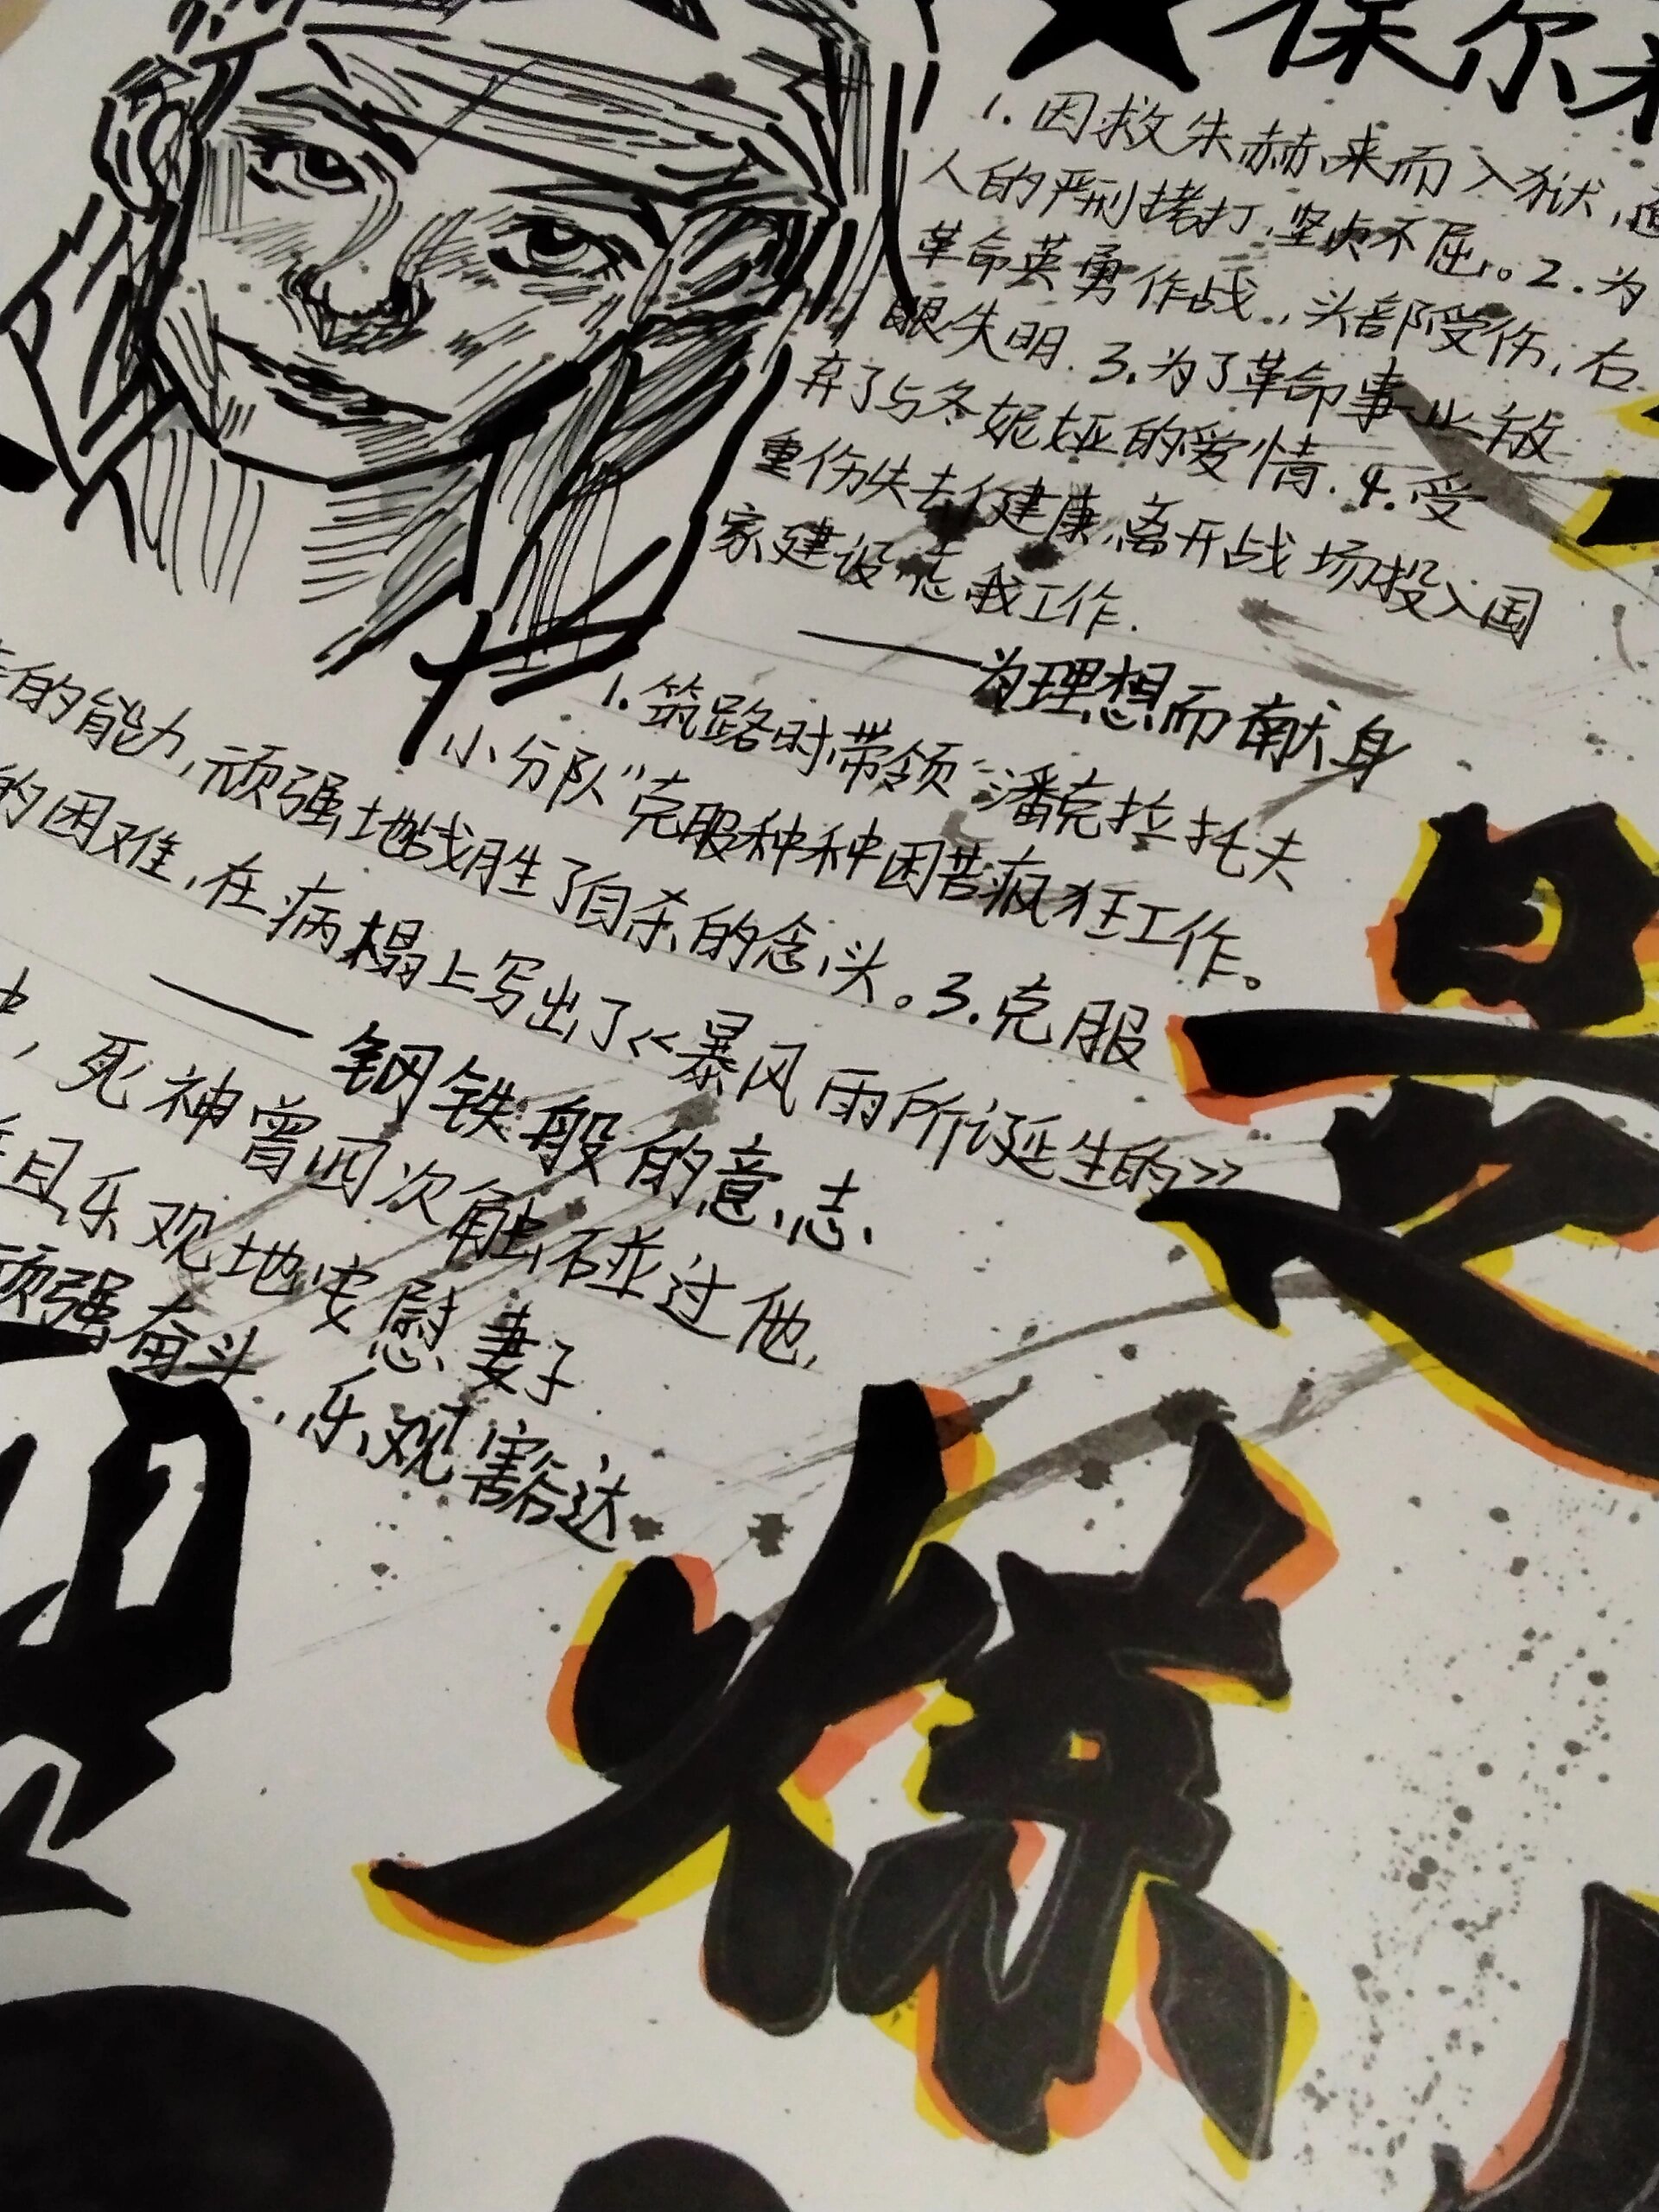 ★保尔
1.因救朱赫来而入狱,
人的严刑拷打,坚贞不屈。2.为
革命英勇作战,头部受伤,右
眼失明.3.为了革命事业放
弃了与冬妮娅的爱情.4.受
重伤失去健康,离开战场投入国
家建设,忘我工作.
——为理想而献身
1.筑路时带领“潘克拉托夫
小分队”克服种种困苦疯狂工作。
的能力,顽强地战胜了自杀的念头。3.克服
的困难,在病榻上写出了《暴风雨所诞生的》
——钢铁般的意志
,死神曾四次触碰过他,
且乐观地安慰妻子
顽强奋斗,乐观豁达
是
燎